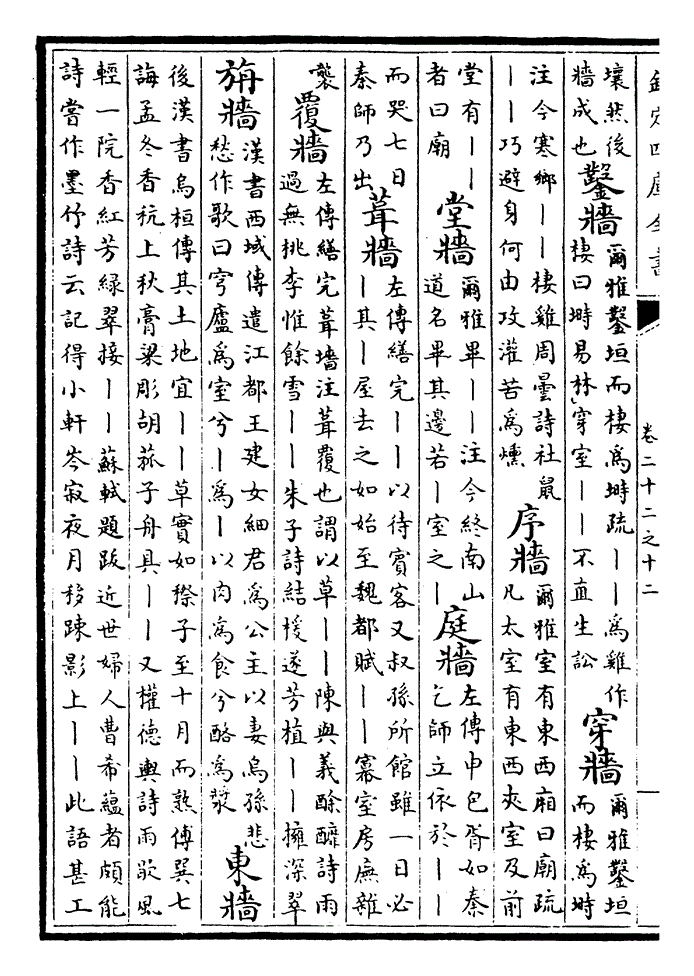 欽定四庫全書
卷二十二之十二
壞然後
牆成也
鑿牆
爾雅鑿垣而棲為塒疏――為雞作
棲曰塒易林穿室――不直生訟
穿牆
爾雅鑿垣
而棲為塒
注今寒鄉――棲雞周曇詩社鼠
――巧避身何由攻灌苦為燻
序牆
爾雅室有東西廂曰廟疏
凡太室有東西夾室及前
堂有――
者曰廟
堂牆
爾雅畢――注今終南山
道名畢其邊若―室之―
庭牆
左傳申包胥如秦
乞師立依於――
而哭七日
秦師乃出
葺牆
左傳繕完――以待賓客又叔孫所館雖一日必
―其―屋去之如始至魏都賦――冪室房廡雜
襲
覆牆
左傳繕完葺墻注葺覆也謂以草――陳與義酴醿詩雨
過無桃李惟餘雪――朱子詩結援遂芳植――擁深翠
旃牆
漢書西域傳遣江都王建女細君為公主以妻烏孫悲
愁作歌曰穹廬為室兮―為―以肉為食兮酪為漿
東牆
後漢書烏桓傳其土地宜――草實如穄子至十月而熟傅巽七
誨孟冬香秔上秋膏粱彫胡菰子舟具――又權德輿詩雨欲風
輕一院香紅芳綠翠接――蘇軾題跋近世婦人曹希蘊者頗能
詩嘗作墨竹詩云記得小軒岑寂夜月移踈影上――此語甚工